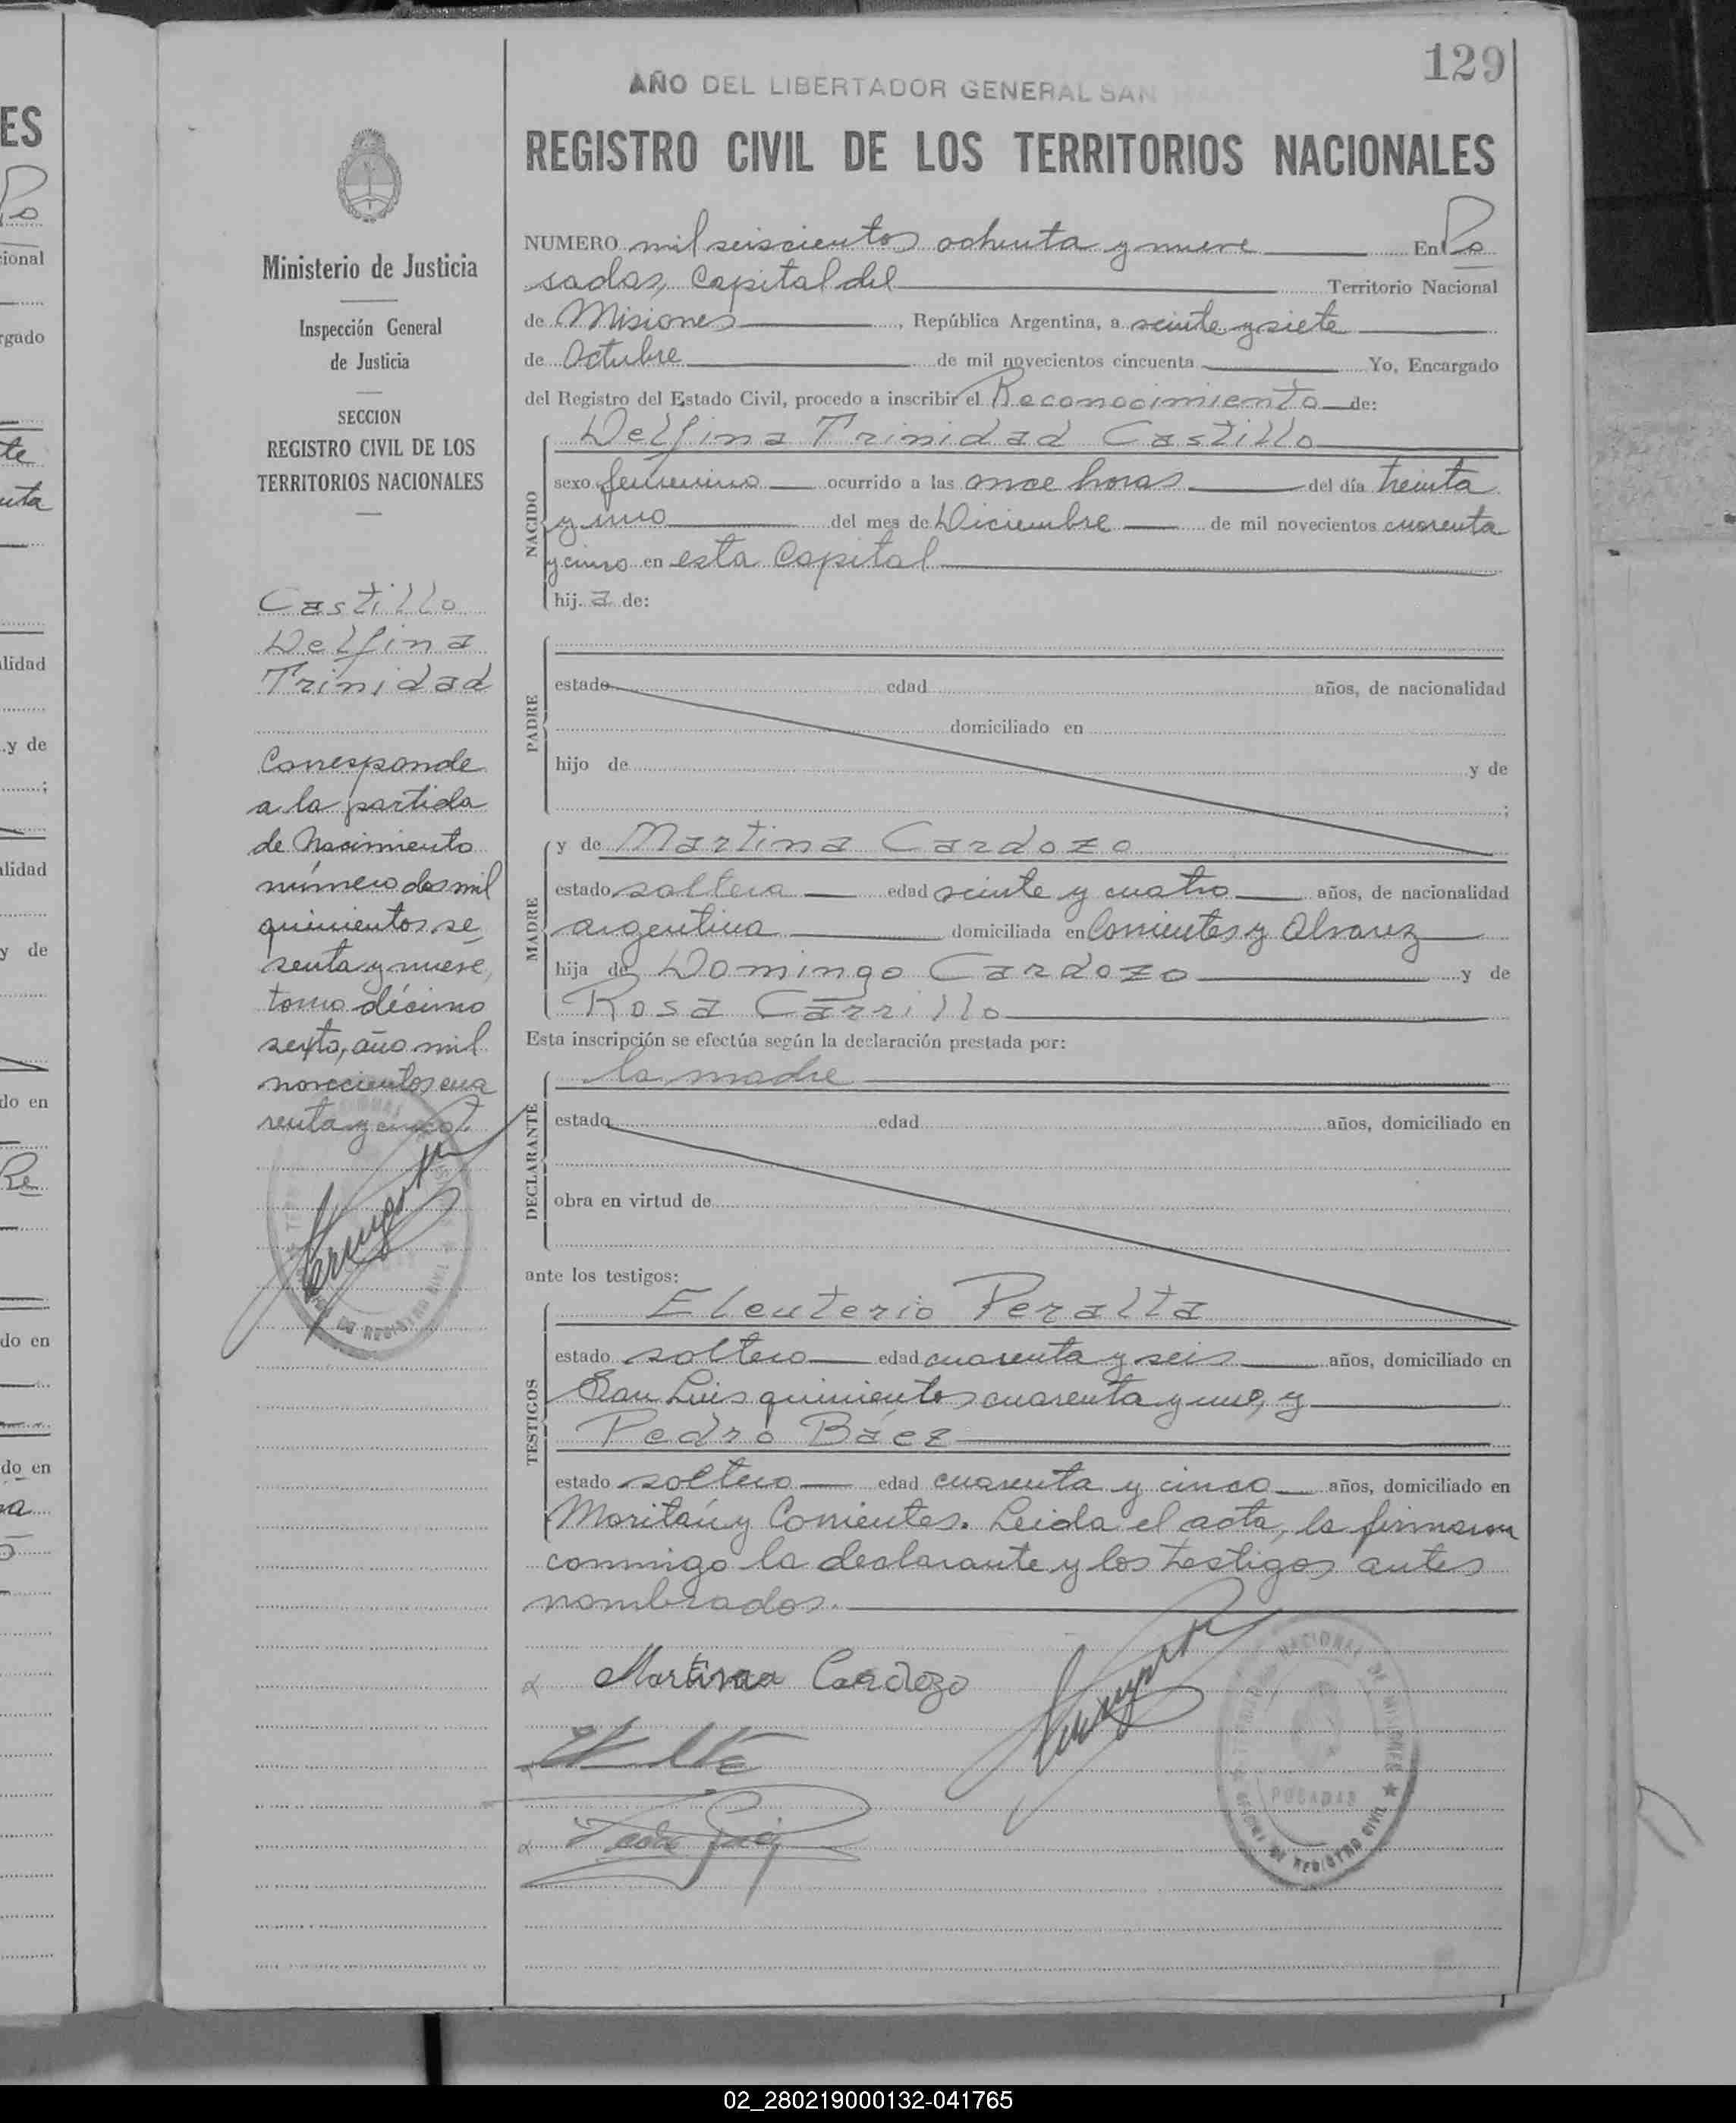 129
AÑO DEL LIBERTADOR GENERAL SAN
REGISTRO CIVIL DE LOS TERRITORIOS NACIONALES
Ministerio de Justicia
Inspección General
de Justicia
SECCION
REGISTRO CIVIL DE LOS
TERRITORIOS NACIONALES
Castillo
Delfina
Trinidad
Corresponde
a la partida
de Nacimiento
número dos mil
quinientos se
senta y nueve,
tomo décimo
sexto, año mil
novecientos cua
renta y cinco.
NUMERO mil seiscientos ochenta y nueve En Po
sadas, Capital del Territorio Nacional
de Misiones, República Argentina, a veinte y siete
de Octubre de mil novecientos cincuenta Yo, Encargado
del Registro del Estado Civil, procedo a inscribir el Reconocimiento de:
NACIDO
Delfina Trinidad Castillo
sexo femenino ocurrido a las once horas del día treinta
y uno del mes de Diciembre de mil novecientos cuarenta
y cinco en esta Capital
hij a de:
PADRE
estado edad años, de nacionalidad
domiciliado en
hijo de y de
;
MADRE
y de Martina Cardozo
estado soltera edad veinte y cuatro años, de nacionalidad
argentina domiciliada en Corrientes y Alvarez
hija de Domingo Cardozo y de
Rosa Carrillo
Esta inscripción se efectúa según la declaración prestada por:
DECLARANTE
la madre
estado edad años, domiciliado en
obra en virtud de
ante los testigos:
TESTIGOS
Eleuterio Peralta
estado soltero edad cuarenta y seis años, domiciliado en
San Luis quinientos cuarenta y uno, y
Pedro Báez
estado soltero edad cuarenta y cinco años, domiciliado en
Moritán y Corrientes. Leida el acta, la firmaron
conmigo la declarante y los testigos antes
nombrados.
Martina Cardozo
NACIONAL DE MISIONES
POSADAS
OFICINA DE REGISTRO CIVIL
02_280219000132-041765